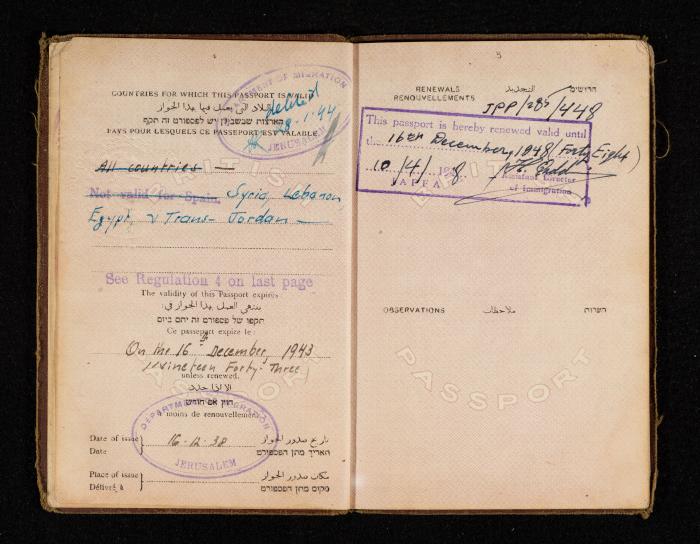 COUNTRIES FOR WHICH THIS PASSPORT IS VALID
البلاد التي يعمل فيها بهذا الجواز
הארצות שבשבילן יש לפספורט זה תקף
PAYS POUR LESQUELS CE PASSEPORT EST VALABLE.
DEPARTMENT OF MIGRATION
JERUSALEM
28-1-44
All countries
Not valid for Spain, Syria, Lebanon,
Egypt, & Trans-Jordan
See Regulation 4 on last page
The validity of this Passport expires
ينتهي العمل بهذا الجواز في:
תקפו של פספורט זה יתם ביום
Ce passeport expire le :
On the 16th December, 1943
(Nineteen Forty-Three)
unless renewed.
الا اذا جدد
חוץ אם חודש
à moins de renouvellement
DEPARTMENT OF MIGRATION
JERUSALEM
Date of issue
Date
16-12-38
تاريخ صدور الجواز
תאריך מתן הפספורט
Place of issue
Délivré à
مكان صدور الجواز
מקום מתן הפספורט
5
RENEWALS
RENOUVELLEMENTS
التجديد
חדושים
JPP/285/448
This passport is hereby renewed valid until
the 16th December, 1948 (Forty Eight)
10/4/1948
JAFFA
Assistant Director
of Immigration
OBSERVATIONS
ملاحظات
הערות
PASSPORT
PASSPORT